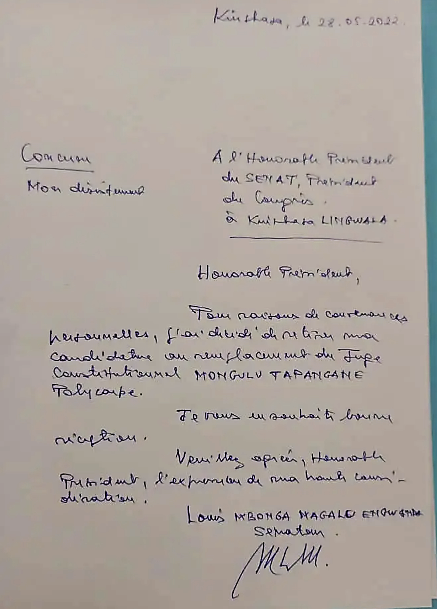 Kinshasa, le 28.05.2022
Concerne
Mon désistement
A l'Honorable Président
du SENAT, Président
du Congrès.
à Kinshasa LINGWALA.
Honorable Président,
Pour raisons de convenances
personnelles, j'ai décidé de retirer ma
candidature au remplacement du Juge
Constitutionnel MONGULU TAPANGANE
Polycarpe.
Je vous en souhaite bonne
réception.
Veuillez agréer, Honorable
Président, l'expression de ma haute consi-
dération.
Louis MBONGA MAGALU ENGWANDA
Sénateur.